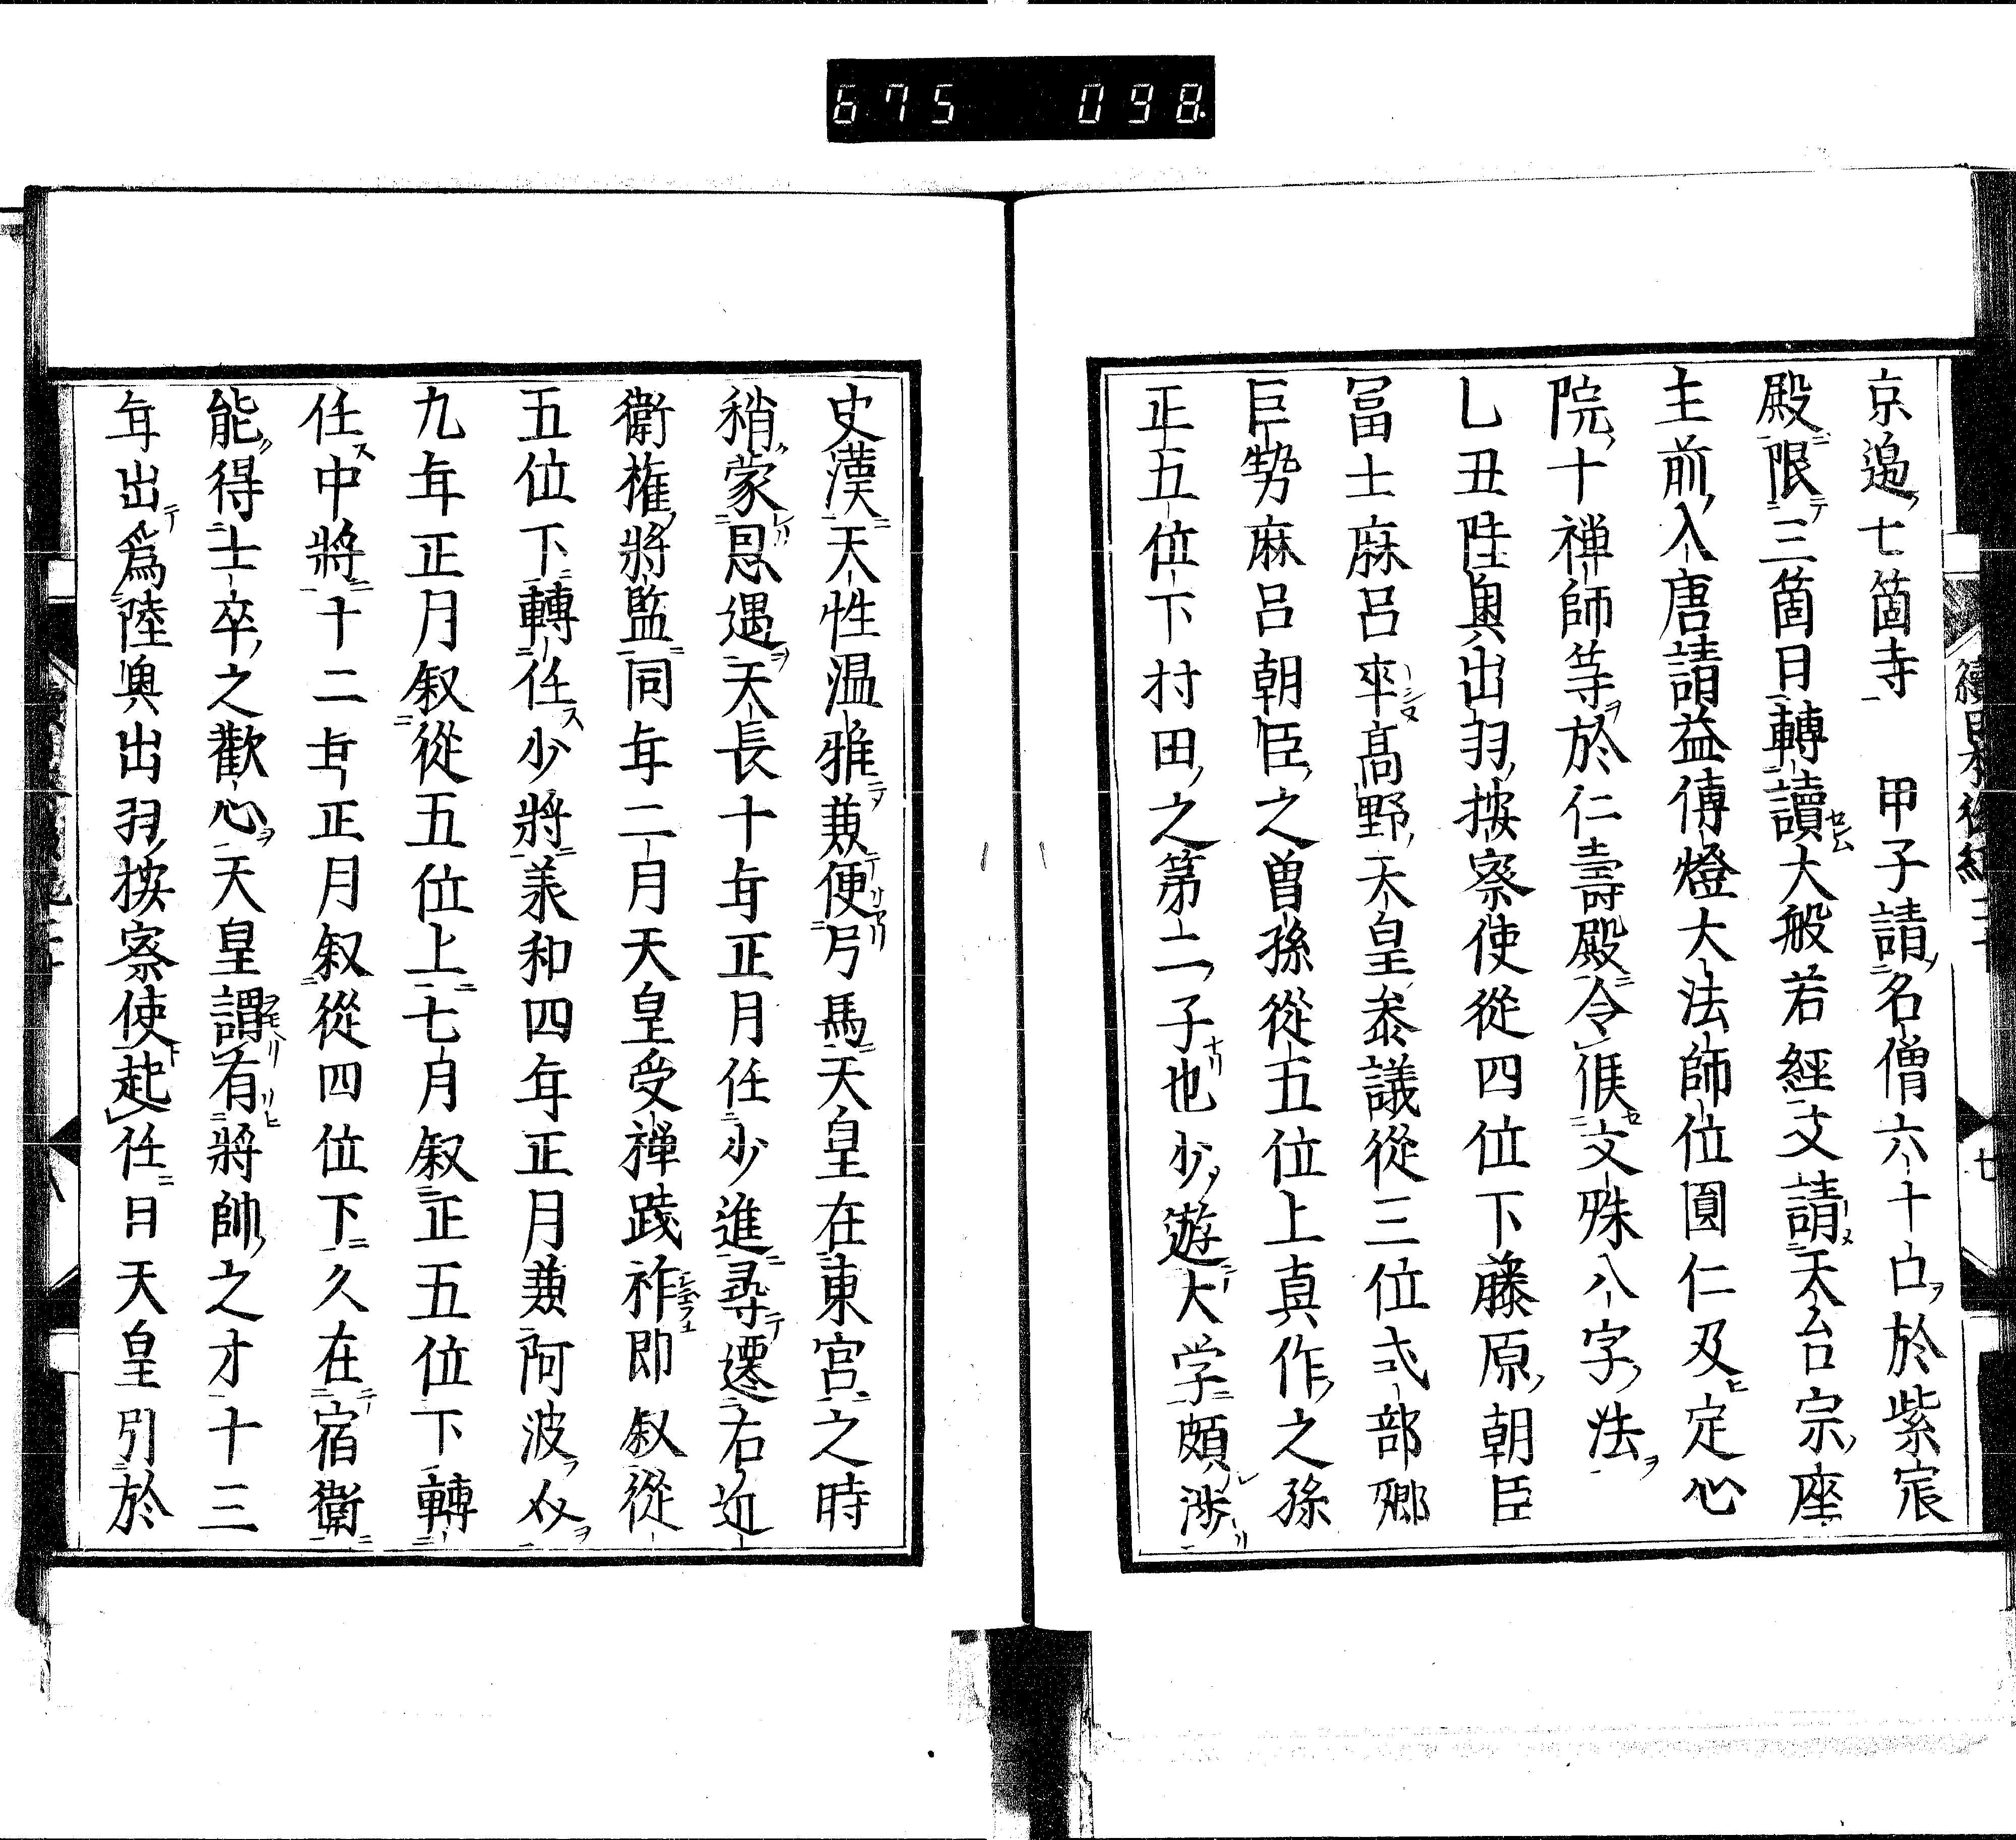 675 098.
京邉七箇寺　甲子請名僧六十口於紫宸
殿限三箇月轉讀大般若經文請天台宗座
主前入唐請益傳燈大法師位圓仁及定心
院十禅師等於仁壽殿令修文殊八字法
乚丑陸奥出羽按察使從四位下藤原朝臣
冨士麻呂卒髙野天皇叅議從三位式部卿
巨勢麻呂朝臣之曽孫從五位上真作之孫
正五位下村田之第二子也少遊大学頗渉
史漢天性温雅兼便弓馬天皇在東宮之時
稍蒙恩遇天長十年正月任少進尋遷右近
衛権將監同年二月天皇受禅踐祚即叙從
五位下轉任少將羕和四年正月兼阿波介
九年正月叙從五位上七月叙正五位下轉
任中將十二年正月叙從四位下久在宿衛
能得士卒之歡心天皇謂有將帥之才十三
年出爲陸奥出羽按察使起任日天皇引於